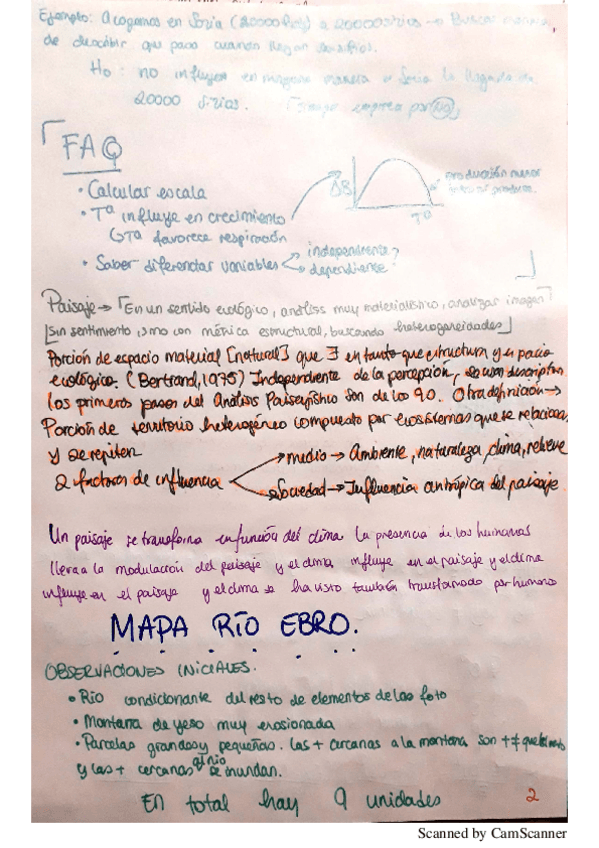 Ejemplo: Acogamos en Soria (20000 hab) a 20000 sirios → Buscar manera
de describir que pasa cuando llegan los sirios.
Ho: no influyen en ninguna manera a Soria la llegada de
20000 sirios.
FAQ
• Calcular escala
• Tª influye en crecimiento
↳ Tª favorece respiración
ΔB
Tª
producción menor
• Saber diferenciar variables
independiente?
dependiente
Paisaje → 「En un sentido ecológico, análisis muy materialístico, analizar imagen
Sin sentimiento, sino con métrica estructural, buscando heterogeneidades」
Porción de espacio material [natural] que ∃ en tanto que estructura y espacio
ecológico. (Bertrand, 1975) Independiente de la percepción,
los primeros pasos del Análisis Paisajístico son de los 90. Otra definición →
Porción de territorio heterogéneo compuesto por ecosistemas que se relacionan
y se repiten
2 factores de influencia
medio → Ambiente, naturaleza, clima, relieve
Sociedad → Influencia antrópica del paisaje
Un paisaje se transforma en función del clima la presencia de los humanos
lleva a la modulación del paisaje y el clima influye en el paisaje y el clima
influye en el paisaje y el clima se ha visto también transformado por humano
MAPA RÍO EBRO.
OBSERVACIONES INICIALES.
• Rio condicionante del resto de elementos de las foto
• Montana de yeso muy erosionada
• Parcelas grandes y pequeñas. las + cercanas a la montana son
y las + cercanas al río se inundan.
En total hay 9 unidades
2
Scanned by CamScanner